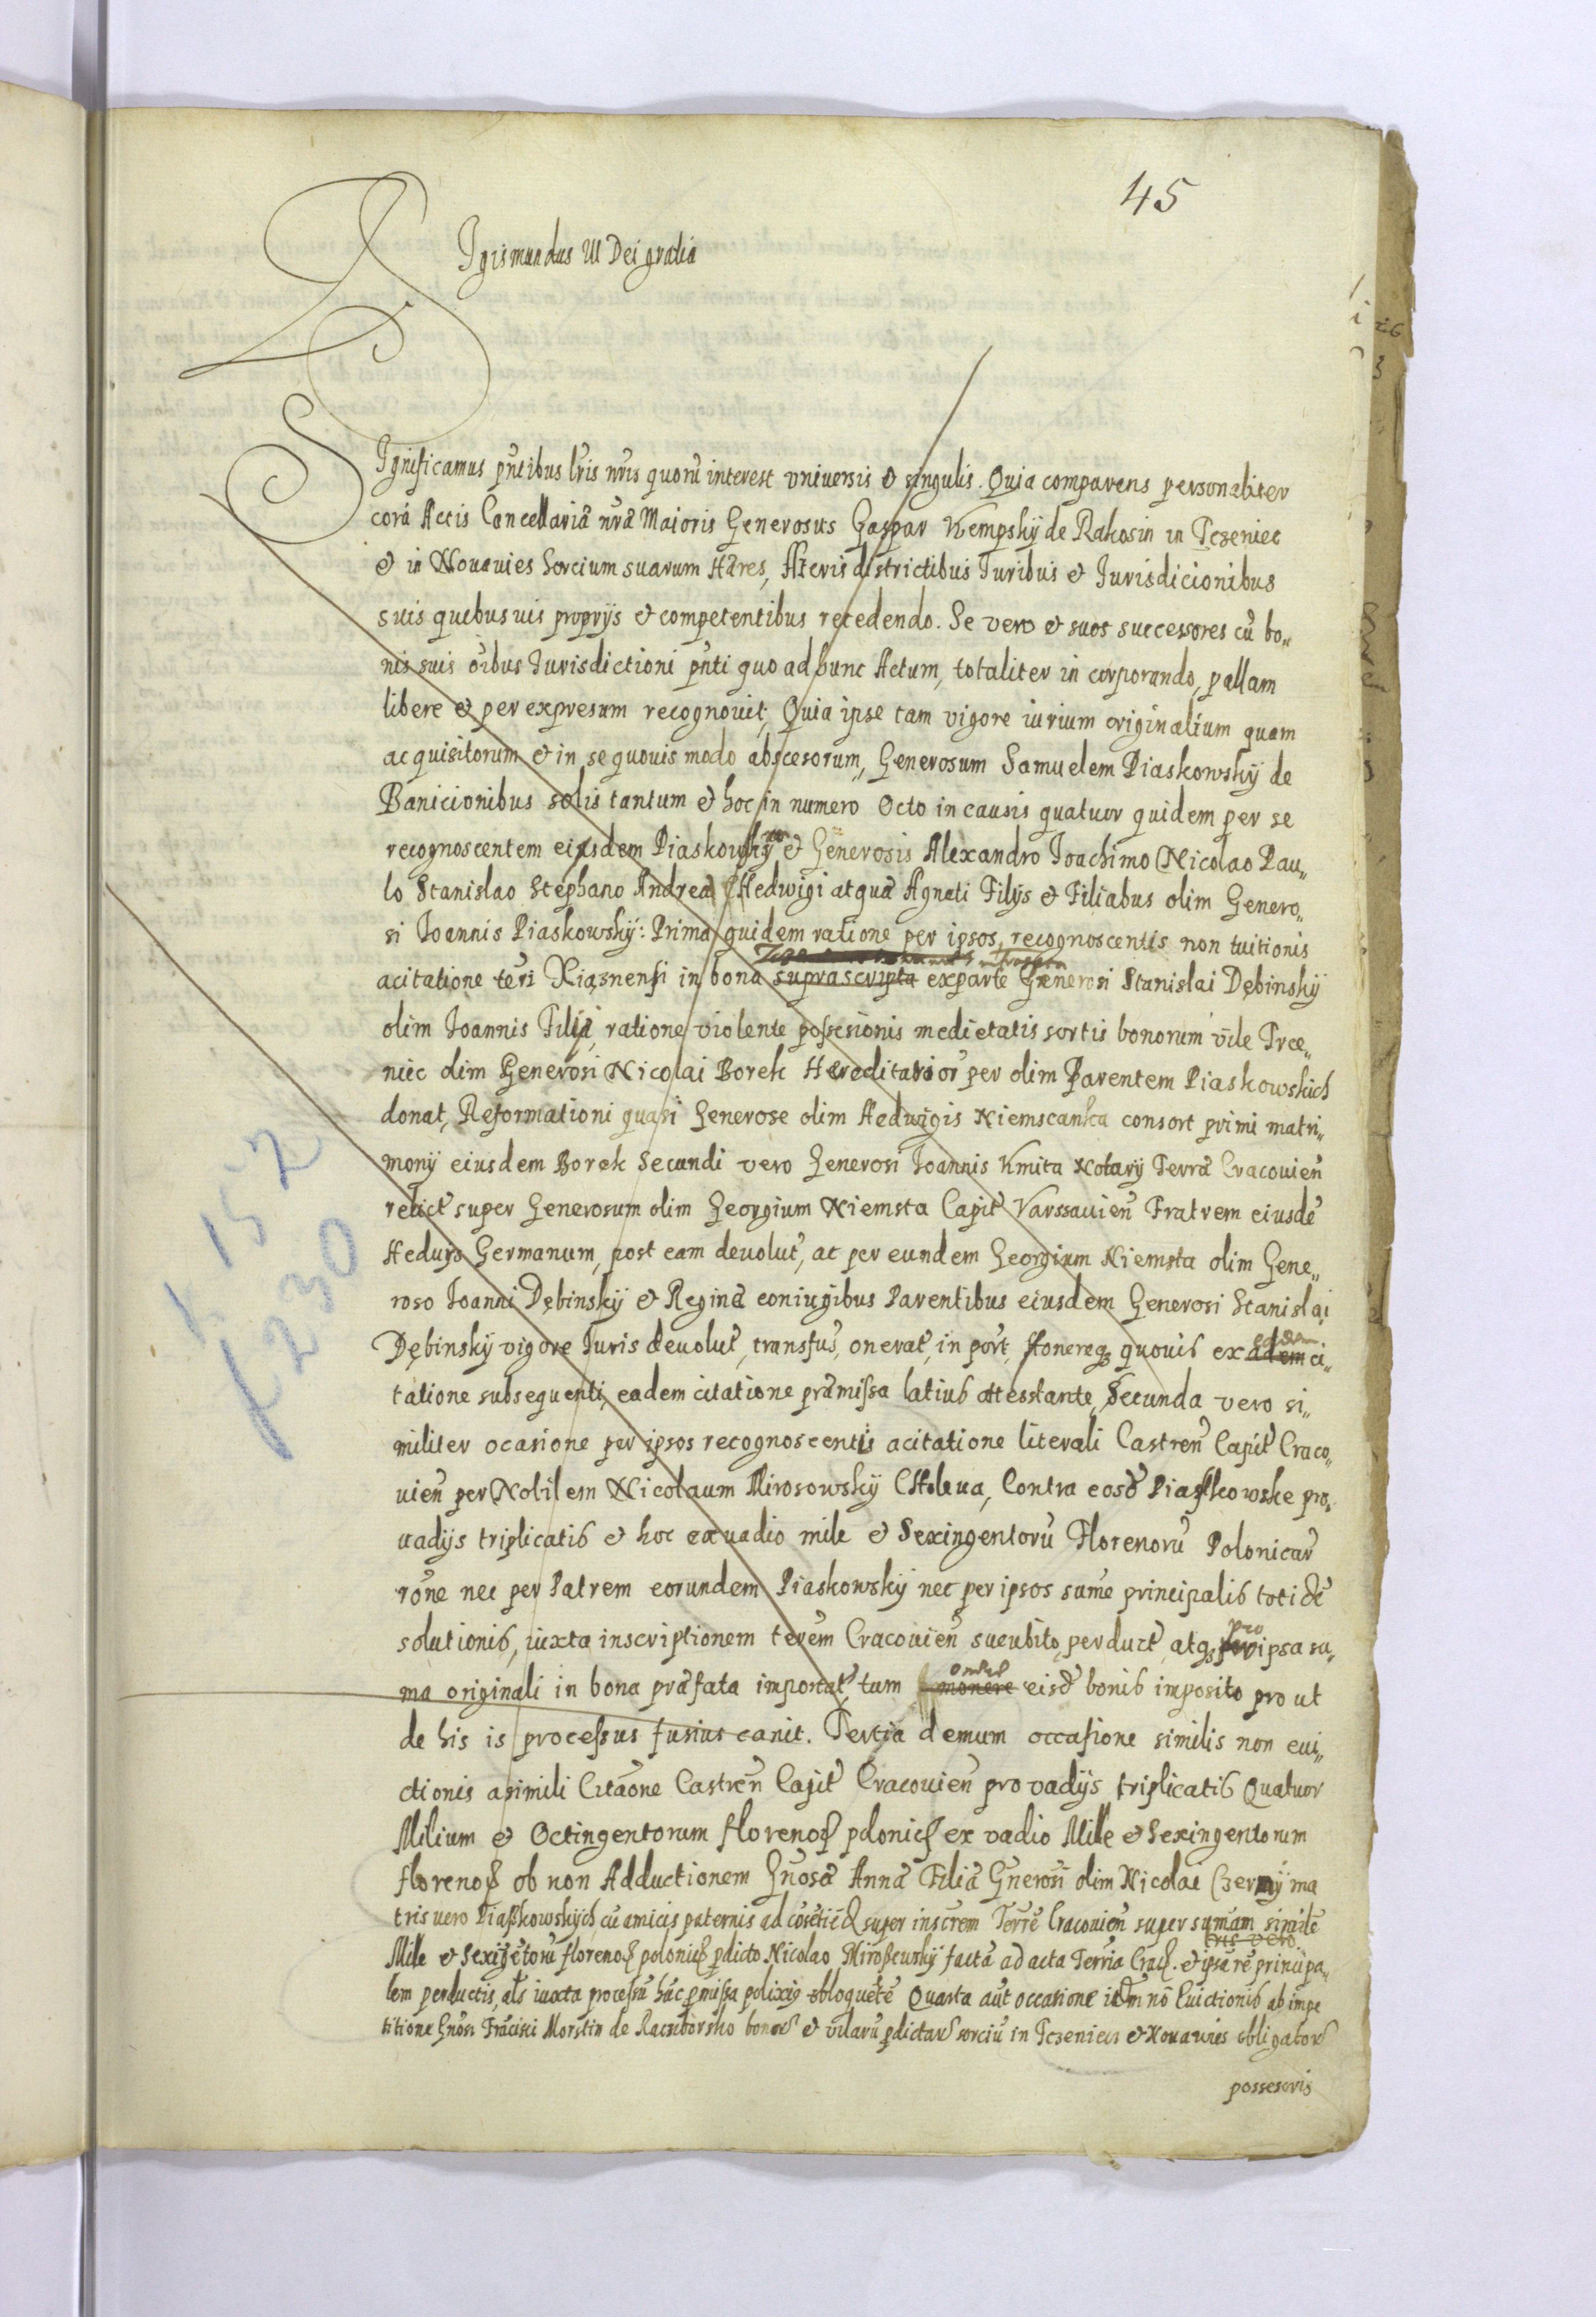 45
Sigismundus III Dei gratia
Significamus pñtibus lris nris quorũ interest vniuersis & singulis. Quia comparens personaliter
corã Actis Cancellariæ nræ Maioris Generosus Gaspar Kempskÿ de Rakosin in Tczeniec
& in Nouauies Sorcium suarum Hæres, Ateris districtibus Iuribus & Iurisdicionibus
suis quebusuis proprÿs & competentibus recedendo. Se vero & suos successores cũ bo„
nis suis oĩbus Iurisdictioni pñti quo ad hunc Actum, totaliter in corporando, pallam
libere & per expresum recognouit, Quia ipse tam vigore iurium originalium quam
acquisitorum & in se quouis modo abscesorum, Generosum Samuelem Piaskowskÿ de
Banicionibus solis tantum & hoc in numero Octo in causis quatuor quidem per se
recognoscentem eiusdem Piaskowskÿ & Generosis Alexandro Ioachimo Nicolao Pau„
lo Stanislao Stephano Andreæ Hedwigi atquæ Agneti Filÿs & Filiabus olim Genero„
si Ioannis Piaskowskÿ: Prima quidem ratione per ipsos recognoscentis non tuitionis
acitatione teri Xiąznensi in bona suprascripta exparte Generosi Stanislai Dębinskÿ
olim Ioannis Filÿ, ratione violente possesionis medietatis sortis bonorum vile Trce„
niec olim Generosi Nicolai Borek Hereditarior per olim Parentem Piaskowskich
donat, Reformationi quasi Generose olim Hedwigis Niemscanka consort primi matri„
monÿ eiusdem Borek Secundi vero Generosi Ioannis Kmita Notarÿ Terræ Cracouieñ
relict super Generosum olim Georgium Niemsta Capit Varssauieñ Fratrem eiusdē
Heduigis Germanum, post eam deuolut, ac per eundem Georgium Niemsta olim Gene„
roso Ioanni Dębinskÿ & Reginæ coniugibus Parentibus eiusdem Generosi Stanislai
Dębinskÿ vigore Iuris deuolut, transfus, onerat, in port, quouis ex adem eadem ci„
tatione subsequenti, eadem citatione præmissa latius attesstante, Secunda vero si„
militer ocasione per ipsos recognoscentis acitatione literali Castreñ Capit Craco„
uieñ per Nobilem Nicolaum Mirosowskÿ Cholewa, Contra eosd Piaskowske pro„
uadÿs triplicatis & hoc ex uadio mile & Sexingentorũ Florenorũ Polonicar
rone nec per Patrem eorundem Piaskowskÿ nec per ipsos sume principalis totidē
solutionis, iuxta inscriptionem terem Cracouieñ sucubito, perduct atq pro ipsa su„
ma originali in bona præfata importat, tam monere eisd bonis imposito pro ut
de his is processus fusius canit. Tertia demum occasione similis non eui„
ctionis a simili Citaone Castreñ Capit Cracouieñ pro vadÿs triplicatis Quatuor
Milium & Octingentorum florenor polonic ex vadio Mille & Sexingentorum
florenor ob non Adductionem Gnosæ Annæ Filiæ Gnerosi olim Nicolai Czernÿ ma
tris vero Piaskowskÿch cũ amicis paternis ad cosetied super inscrem Terre Cracouieñ super sumam simile
tris vero
Mille & Sexigetorũ florenor polonic pdicto Nicolao Miroszewskÿ facta ad acta Terria Crac. & ipsa rē principa„
lem perductis, als iuxta processũ hac pmissa polixig obloquētē Quarta aut occasione idem nõ Euictionis ab impe
titione Gnosi Fracisci Morstin de Raciborsko bonor & vilarũ pdictar sorciũ in Tczeniecz & Nouauies obligator
possesoris
k 152
f 230